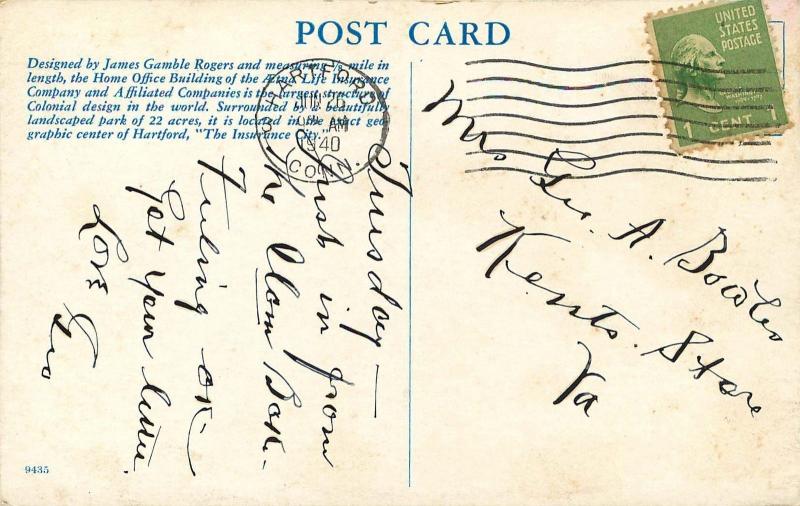 POST CARD
Designed by James Gamble Rogers and measuring ⅛ mile in
length, the Home Office Building of the Ætna Life Insurance
Company and Affiliated Companies is the largest structure of
Colonial design in the world. Surrounded by a beautifully
landscaped park of 22 acres, it is located in the exact geo-
graphic center of Hartford, "The Insurance City."
HARTFORD
JUN 26
AM
1940
CONN.
UNITED
STATES
POSTAGE
WASHINGTON
1 CENT 1
Tuesday—
Just in from
the Clam Bake.
Feeling ok—
Got your letter.
Love
Geo
Mrs. Geo. A. Bowles
Kents. Store
Va
9435